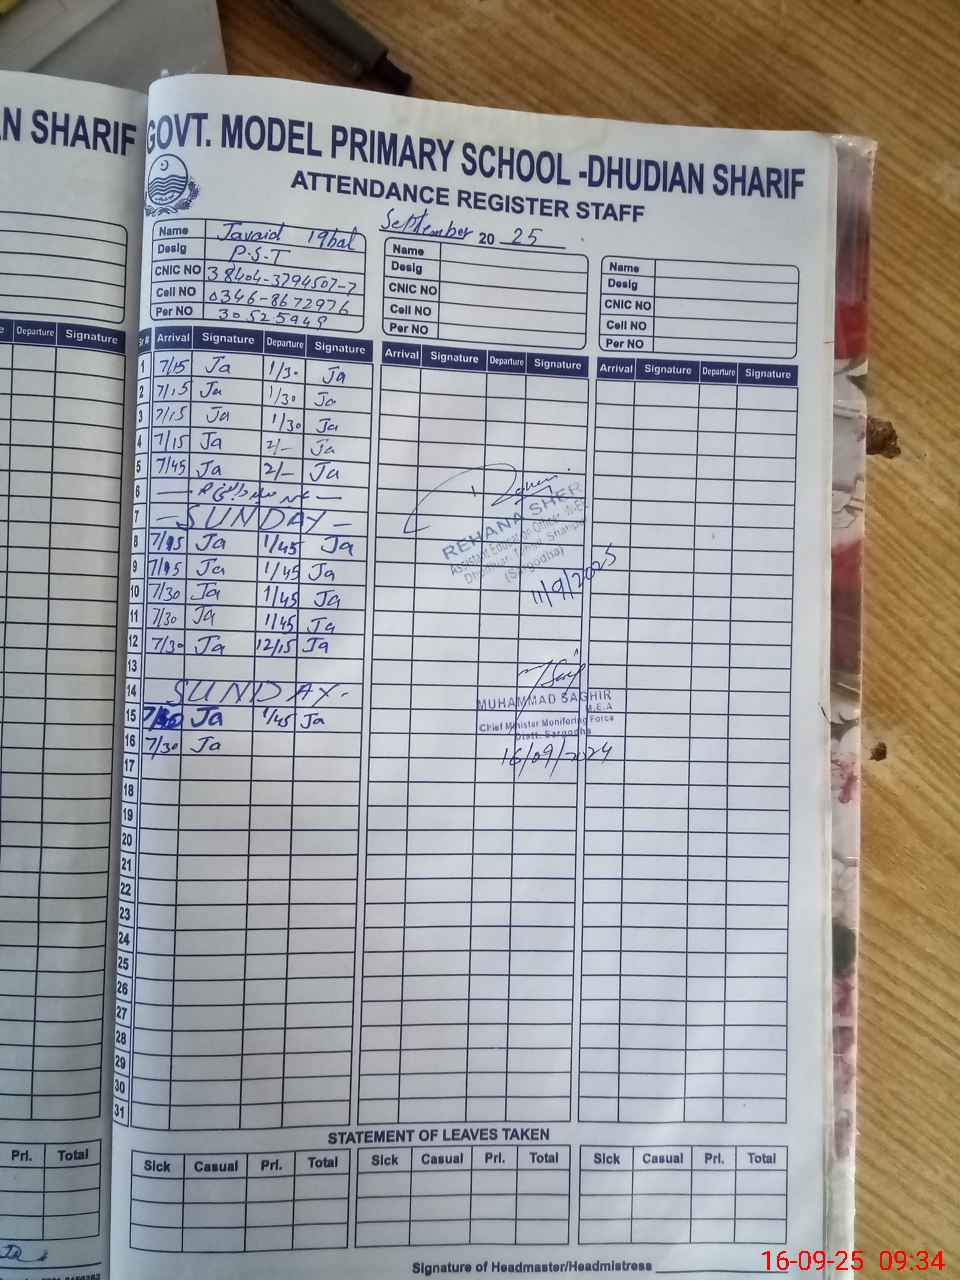 AN SHARIF
GOVT. MODEL PRIMARY SCHOOL -DHUDIAN SHARIF
ATTENDANCE REGISTER STAFF
September 20 25
Name Javaid Iqbal
Desig P.S.T
CNIC NO 38404-3794507-7
Cell NO 0346-8672976
Per NO 30525949
Name
Desig
CNIC NO
Cell NO
Per NO
Name
Desig
CNIC NO
Cell NO
Per NO
Departure Signature
Sr # Arrival Signature Departure Signature Arrival Signature Departure Signature Arrival Signature Departure Signature
1 7/15 Ja 1/30 Ja
2 7/15 Ja 1/30 Ja
3 7/15 Ja 1/30 Ja
4 7/15 Ja 2/- Ja
5 7/45 Ja 2/- Ja
6
7 - SUNDAY -
8 7/45 Ja 1/45 Ja
9 7/45 Ja 1/45 Ja
10 7/30 Ja 1/45 Ja
11 7/30 Ja 1/45 Ja
12 7/30 Ja 12/15 Ja
13
14 SUNDAY -
15 7/30 Ja 1/45 Ja
16 7/30 Ja
17
18
19
20
21
22
23
24
25
26
27
28
29
30
31
REHANA SHER
Assistant Education Officer
(Sargodha)
11/9/2025
MUHAMMAD SAGHIR
M.E.A
Chief Minister Monitoring Force
Distt. Sargodha
16/09/2024
STATEMENT OF LEAVES TAKEN
Prl. Total
Sick Casual Prl. Total Sick Casual Prl. Total Sick Casual Prl. Total
Signature of Headmaster/Headmistress
16-09-25 09:34